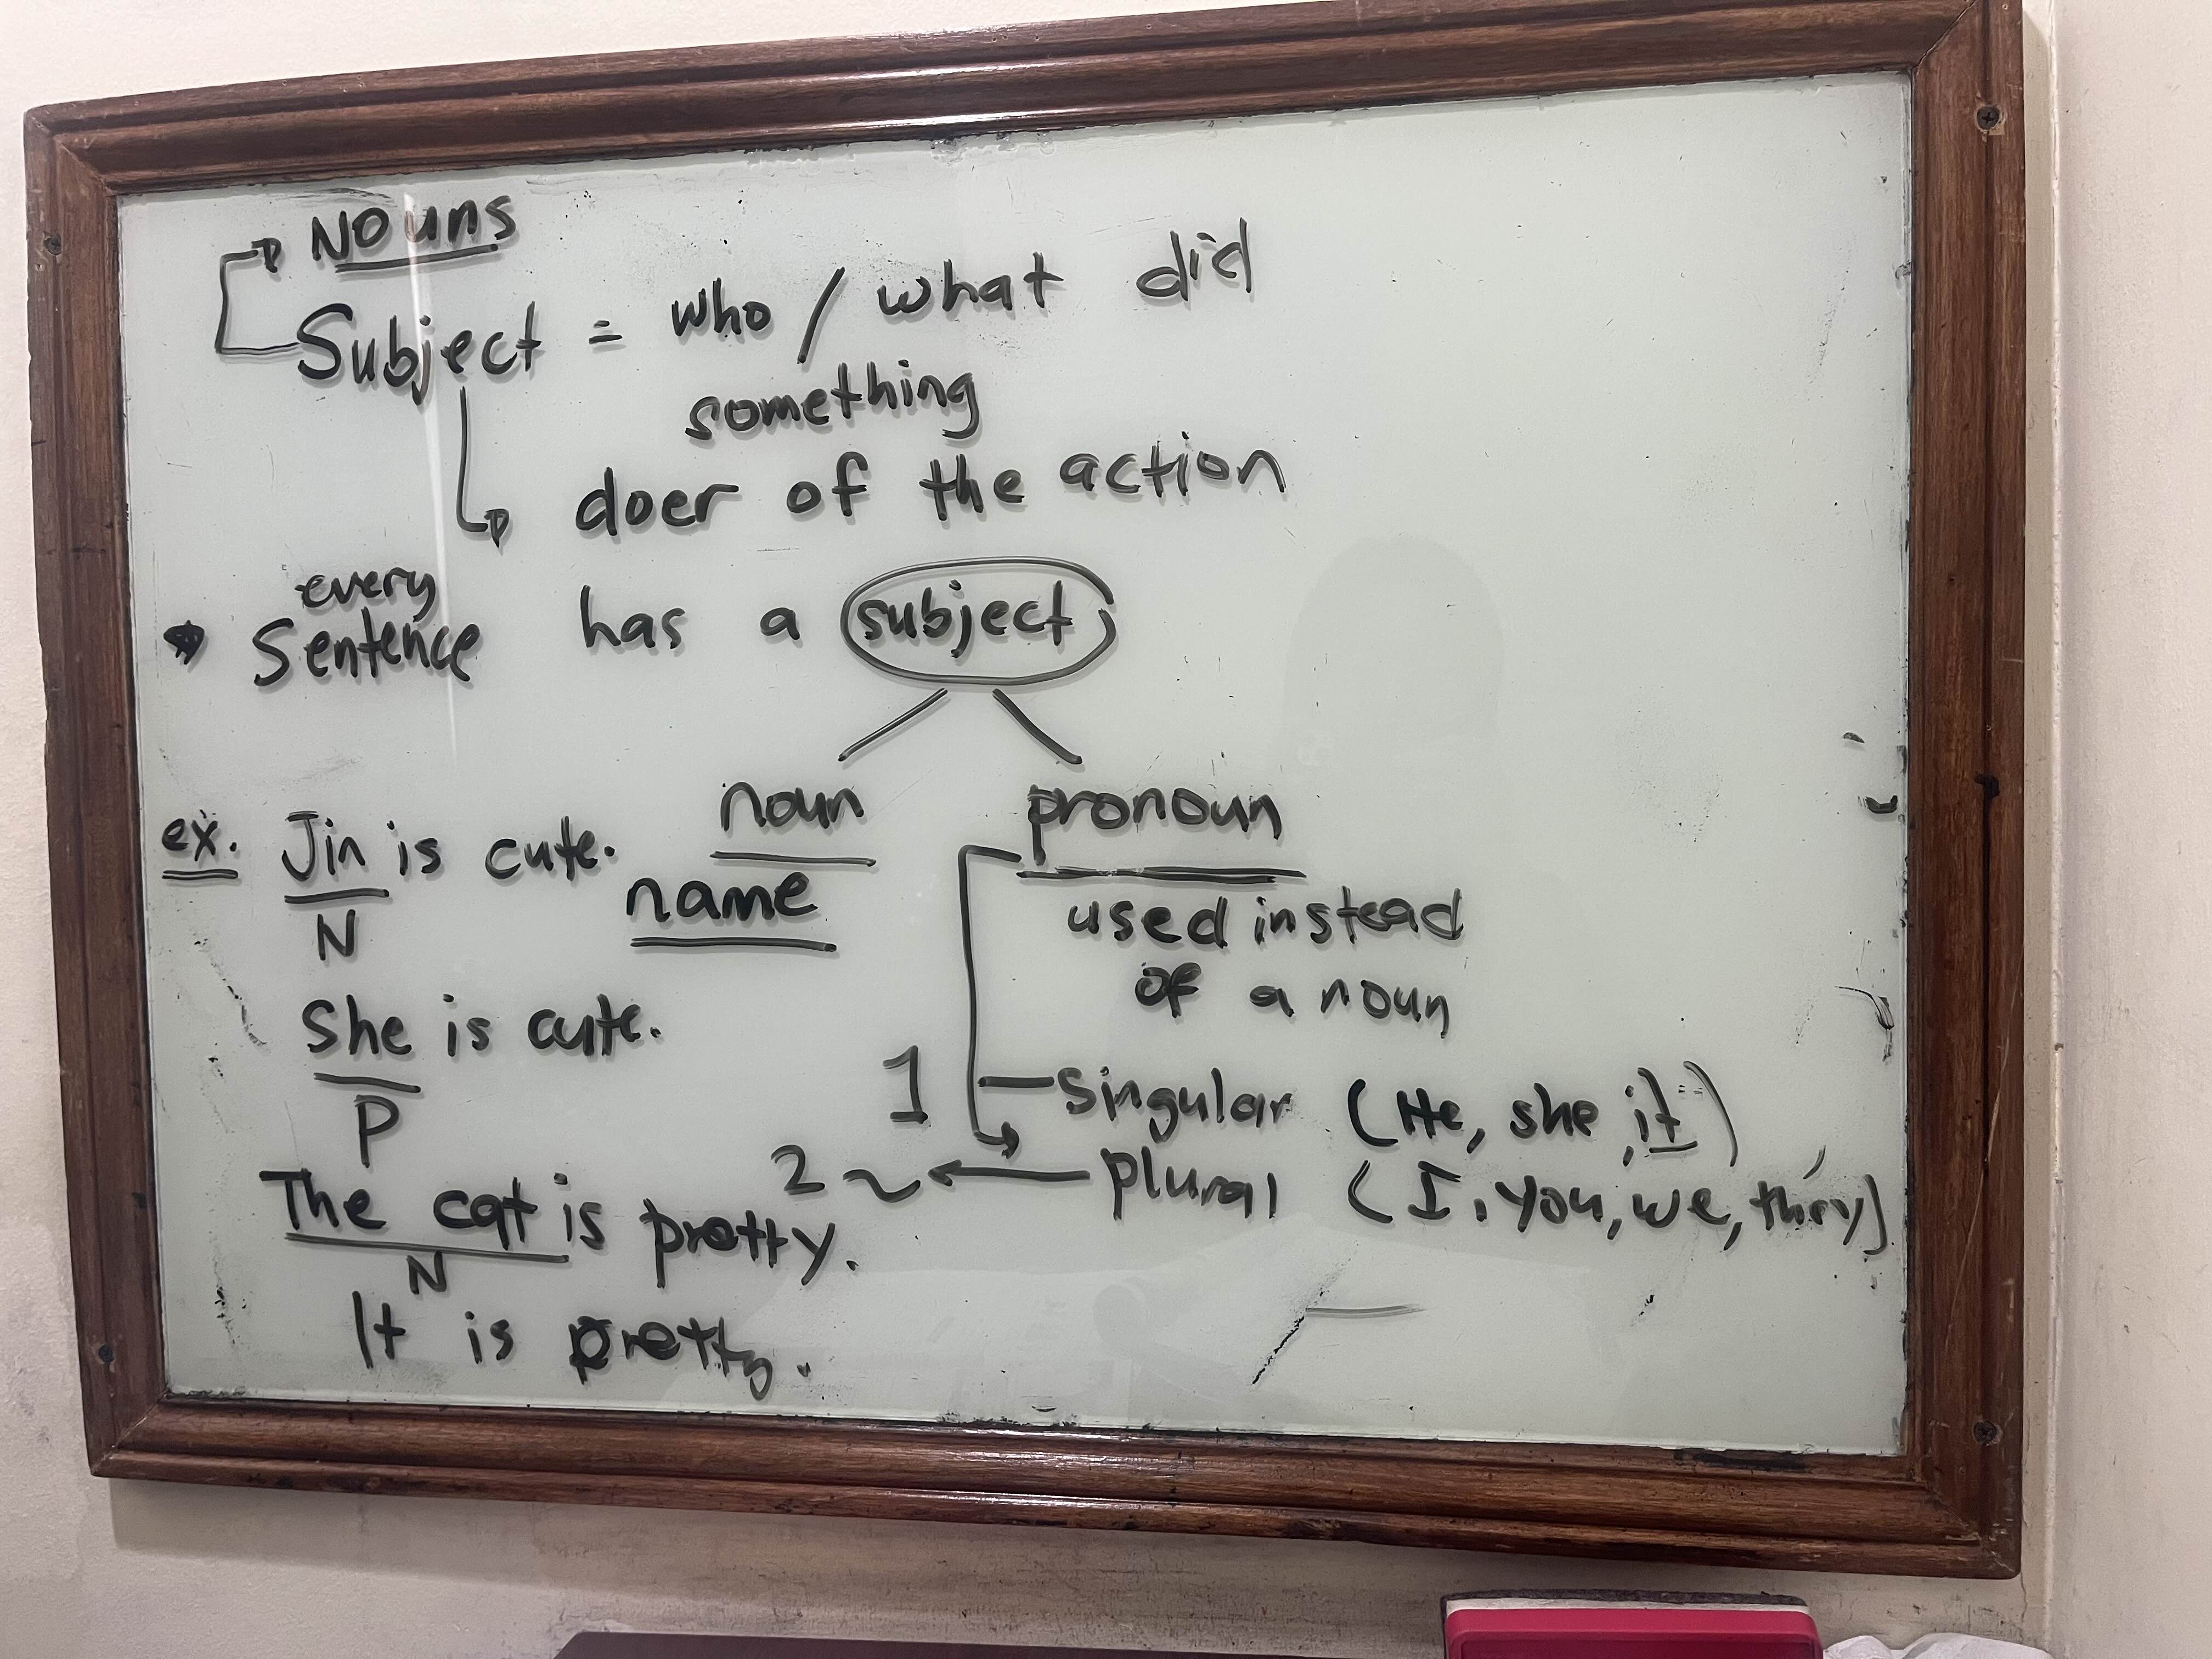 Nouns
Subject = who / what did
something
doer of the action
every
Sentence has a subject
noun pronoun
ex. Jin is cute. name used instead
N of a noun
She is cute.
P
1 singular (He, she, it)
2 ~ plural (I, you, we, they)
The cat is pretty.
N
It is pretty.